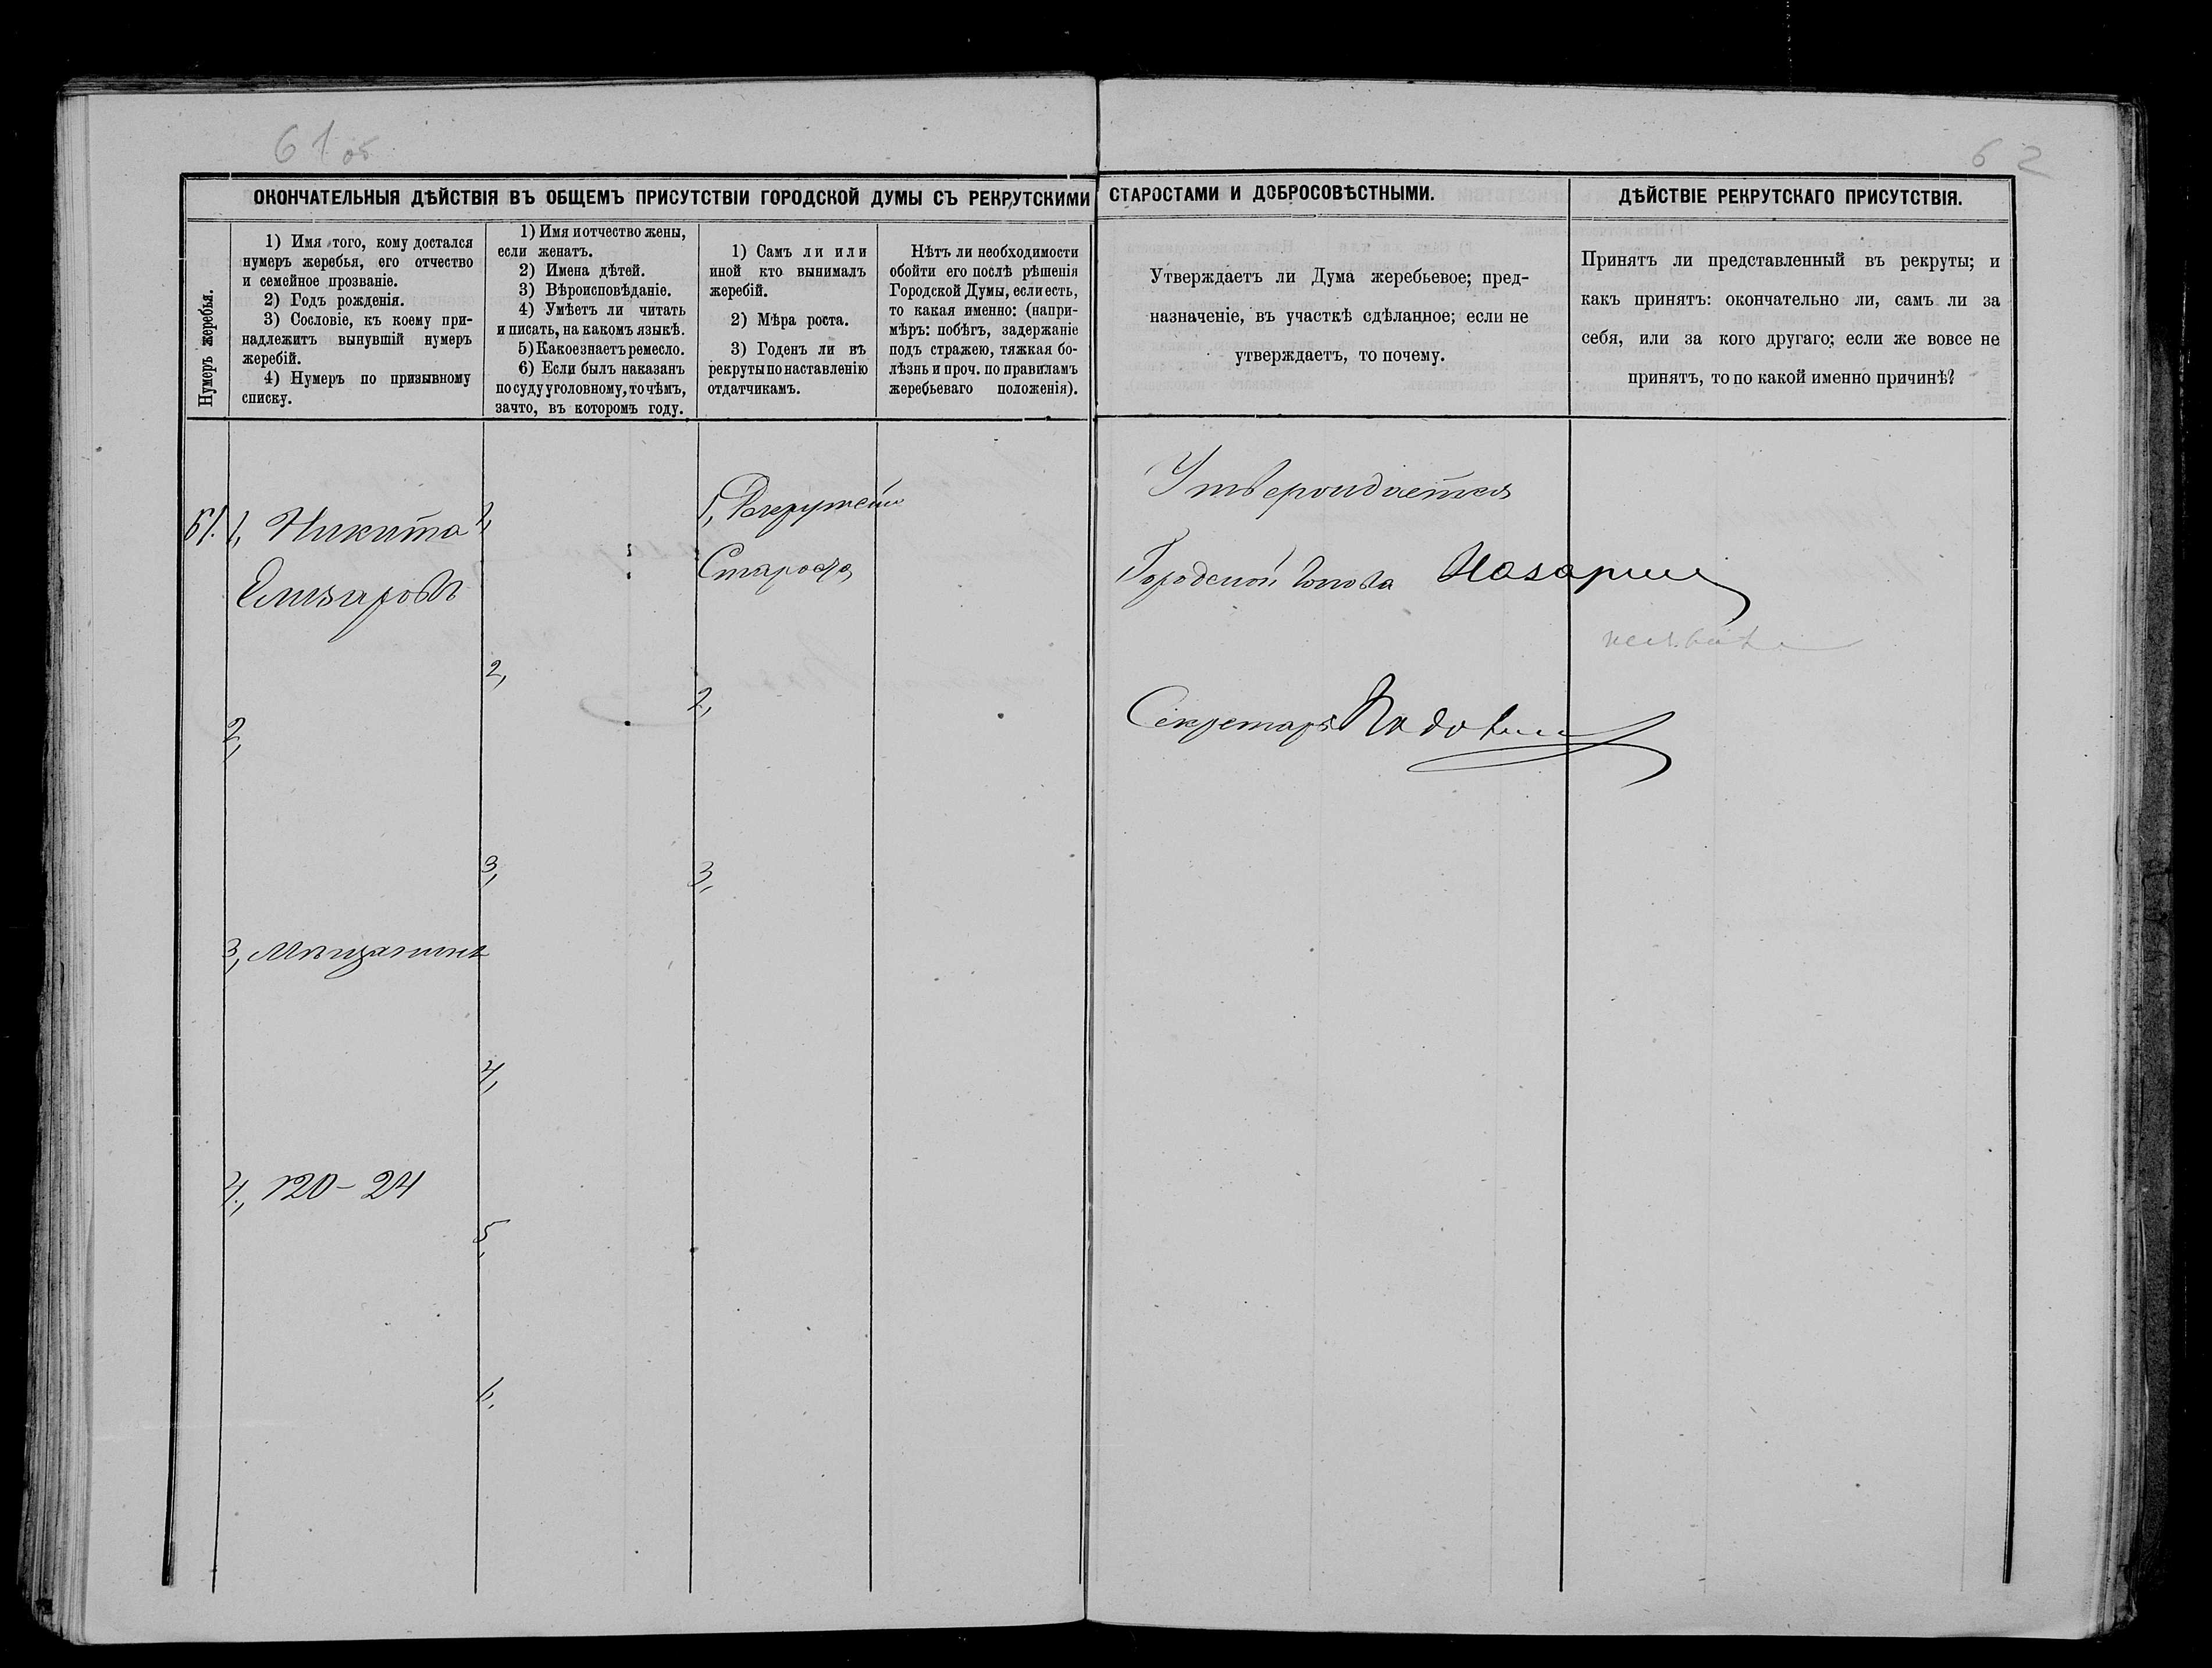 61 об
62
ОКОНЧАТЕЛЬНЫЯ ДѢЙСТВІЯ ВЪ ОБЩЕМЪ ПРИСУТСТВІИ ГОРОДСКОЙ ДУМЫ СЪ РЕКРУТСКИМИ СТАРОСТАМИ И ДОБРОСОВѢСТНЫМИ.
ДѢЙСТВІЕ РЕКРУТСКАГО ПРИСУТСТВІЯ.
Нумеръ жеребья.
1) Имя того, кому достался
нумеръ жеребья, его отчество
и семейное прозваніе.
2) Годъ рожденія.
3) Сословіе, къ коему при-
надлежитъ вынувшій нумеръ
жеребій.
4) Нумеръ по призывному
списку.
1) Имя и отчество жены,
если женатъ.
2) Имена дѣтей.
3) Вѣроисповѣданіе.
4) Умѣетъ ли читать
и писать, на какомъ языкѣ.
5) Какое знаетъ ремесло.
6) Если былъ наказанъ
по суду уголовному, то чѣмъ,
за что, въ которомъ году.
1) Самъ ли или
иной кто вынималъ
жеребій.
2) Мѣра роста.
3) Годенъ ли въ
рекруты по наставленію
отдатчикамъ.
Нѣтъ ли необходимости
обойти его послѣ рѣшенія
Городской Думы, если есть,
то какая именно: (напри-
мѣръ: побѣгъ, задержаніе
подъ стражею, тяжкая бо-
лѣзнь и проч. по правиламъ
жеребьеваго положенія).
Утверждаетъ ли Дума жеребьевое; пред-
назначеніе, въ участкѣ сдѣланное; если не
утверждаетъ, то почему.
Принятъ ли представленный въ рекруты; и
какъ принятъ: окончательно ли, самъ ли за
себя, или за кого другаго; если же вовсе не
принятъ, то по какой именно причинѣ?
61. 1, Никита
Елизаровъ
2,
3, Мѣщанинъ
4, 120 – 24
1,
2,
3,
4,
5,
6,
1, Рекрутскій
Староста
2,
3,
Утверждается
Городской Голова Назаринъ
Секретарь